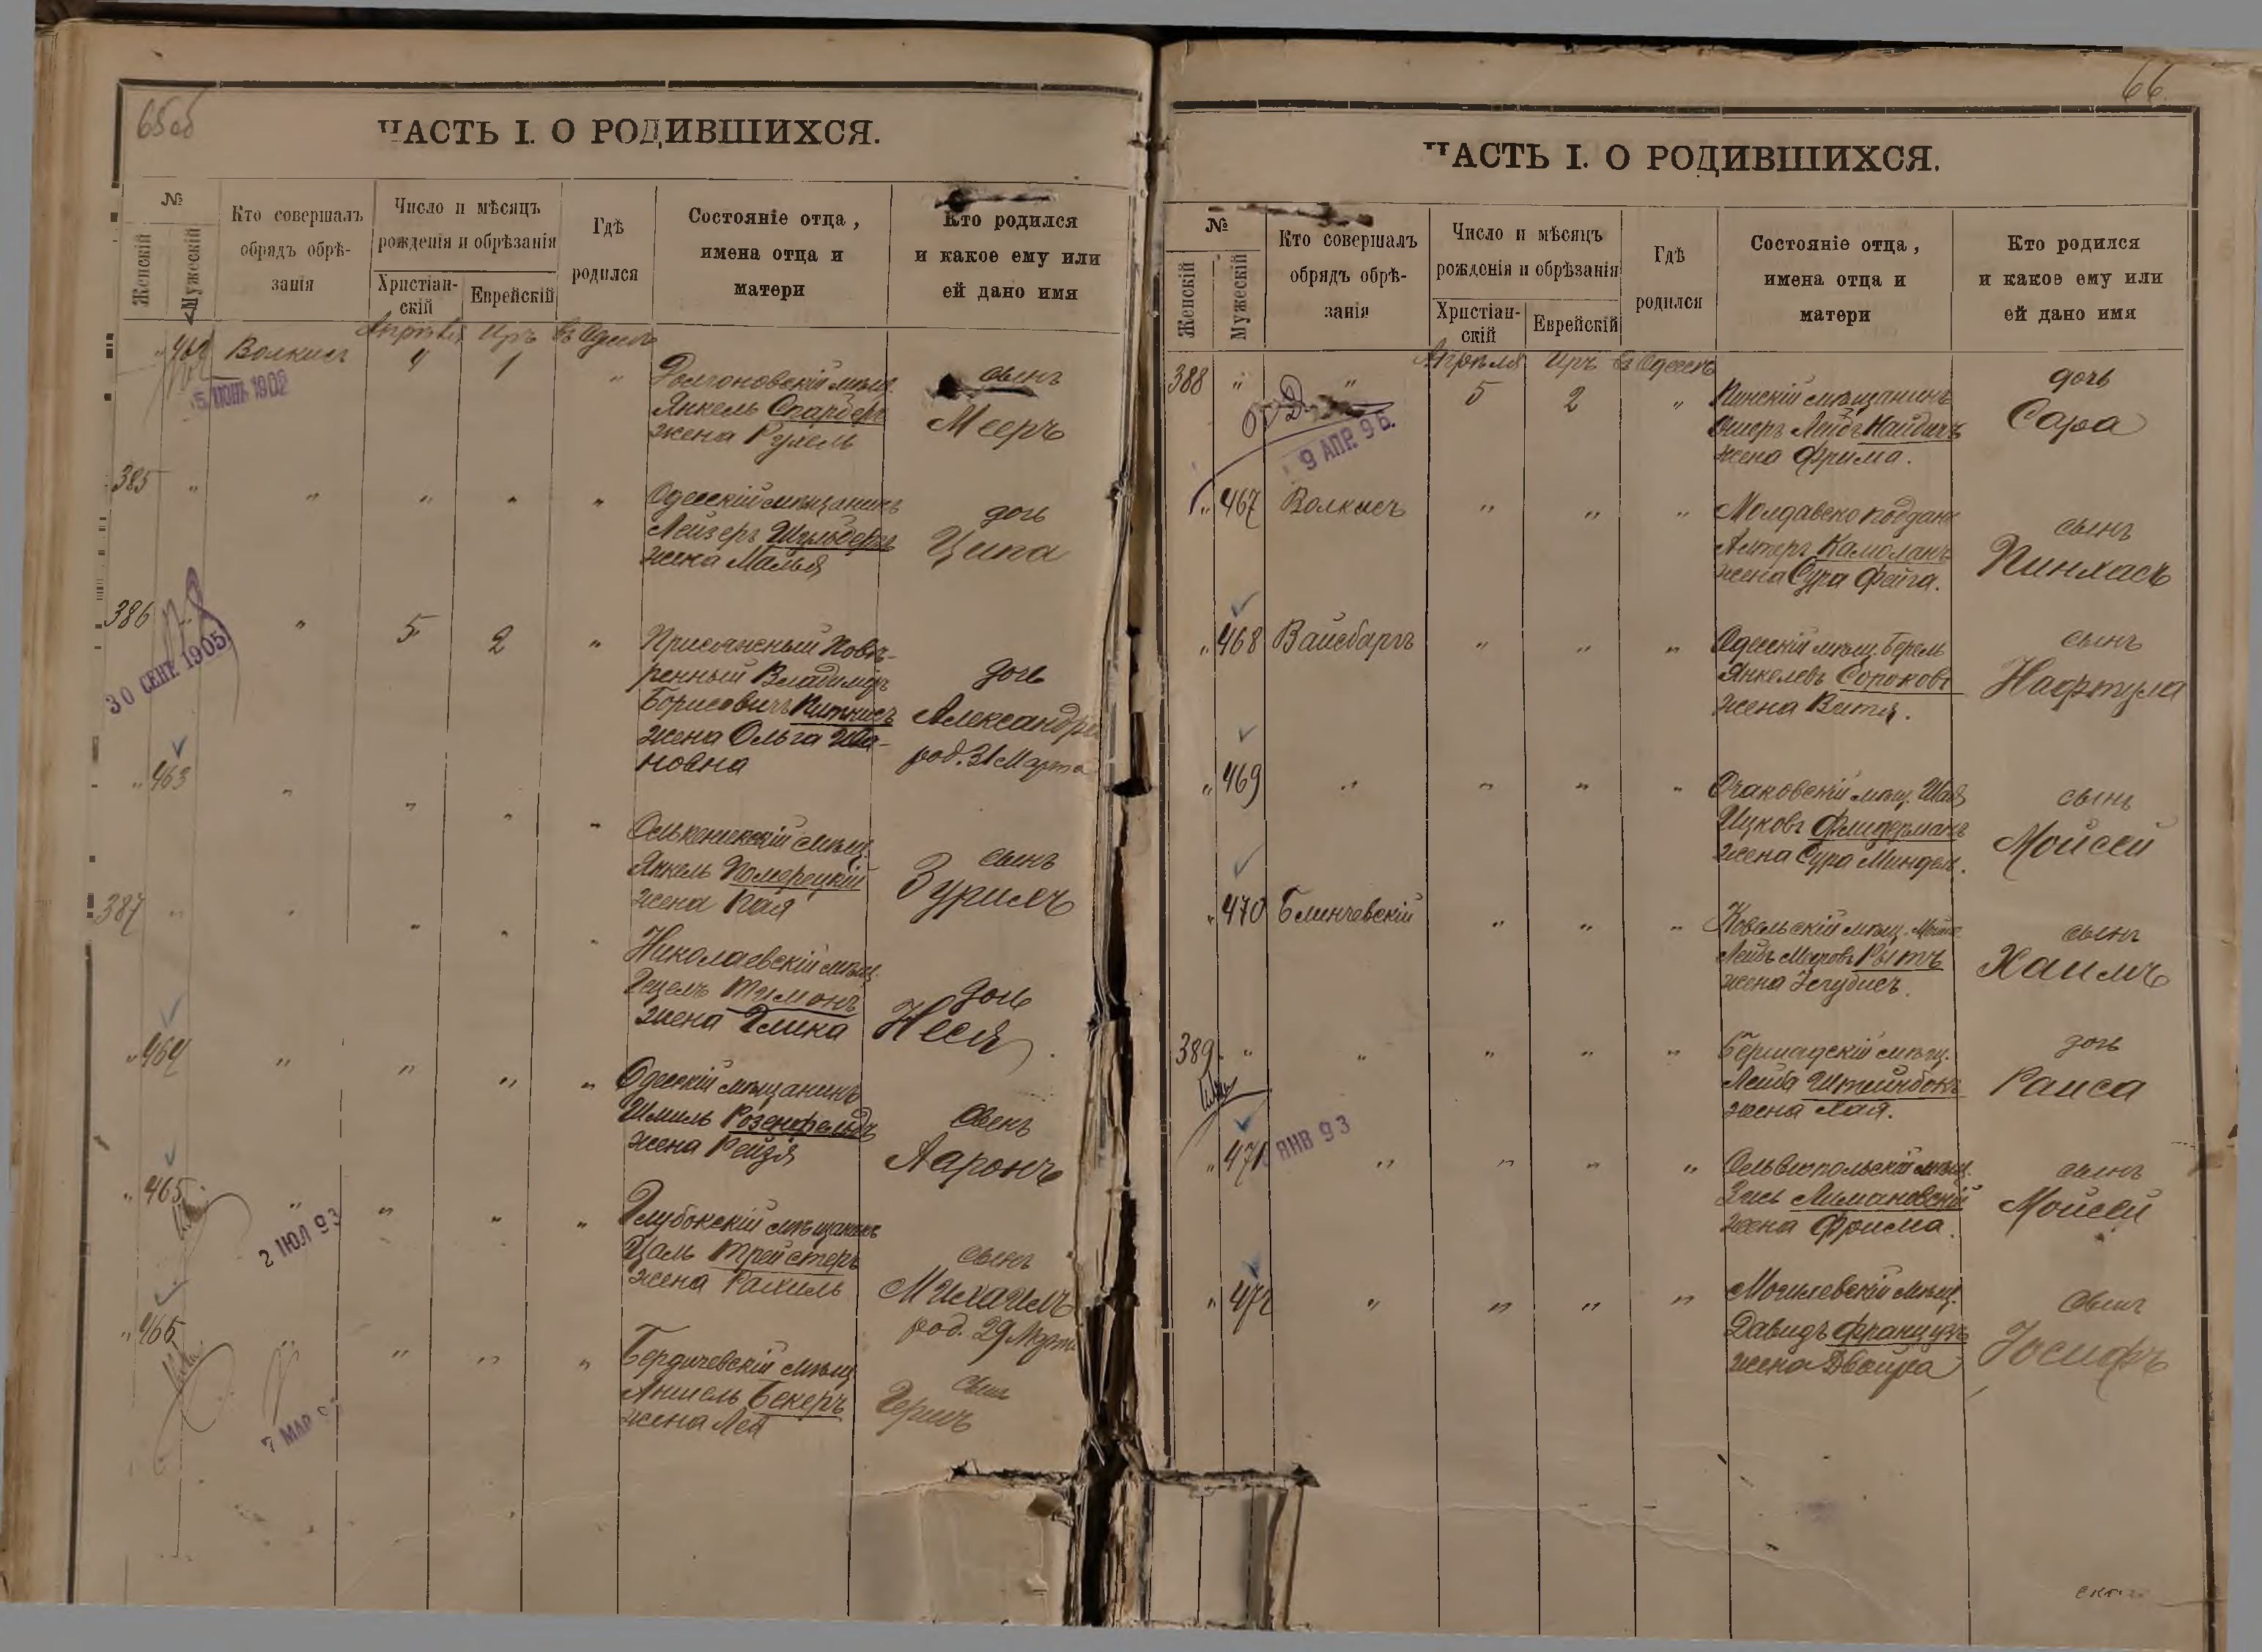 65об
ЧАСТЬ I. О РОДИВШИХСЯ.
№
Женскій
Мужескій
Кто совершалъ
обрядъ обрѣ-
занія
Число и мѣсяцъ
рожденія и обрѣзанія
Христіан-
скій
Еврейскій
Гдѣ
родился
Состояніе отца,
имена отца и
матери
Кто родился
и какое ему или
ей дано имя
Апрѣля Иръ въ Одессѣ
" 462 Волкисъ 4 1 "
5 ІЮНЬ 1902
мѣщ.
Янкель Спарберъ
жена Рухель
сынъ
Мееръ
385 " " " " "
Одесскій мѣщанинъ
Лейзеръ Шульбергъ
жена Малья
дочь
Ципа
386 " " 5 2 "
30 СЕНТ. 1905
Присяжный Повѣ-
ренный Владиміръ
Борисовичъ Питкисъ
жена Ольга
новна
дочь
Александра
род. 31 Марта
" 463 " " " "
мѣщ.
Янкель Померецкій
жена Хая
сынъ
Зурихъ
387 " " " " "
Николаевскій мѣщ.
Гецель Тимонъ
жена Глика
дочь
Неся
" 464 " " " "
Одесскій мѣщанинъ
Шмиль Розенфельдъ
жена Рейзя
Сынъ
Ааронъ
" 465 " " " "
2 ІЮЛ 93
Глубокскій мѣщанинъ
Цаль Трейстеръ
жена Рахиль
сынъ
Михаилъ
род. 29 Марта
" 466 " " " "
7 МАР
Бердичевскій мѣщ.
Аншель Бекеръ
жена Лея
Сынъ
Гершъ
66
ЧАСТЬ I. О РОДИВШИХСЯ.
№
Женскій
Мужескій
Кто совершалъ
обрядъ обрѣ-
занія
Число и мѣсяцъ
рожденія и обрѣзанія
Христіан-
скій
Еврейскій
Гдѣ
родился
Состояніе отца,
имена отца и
матери
Кто родился
и какое ему или
ей дано имя
Апрѣля Иръ въ Одессѣ
388 " " 5 2 "
9 АПР. 96.
Пинскій мѣщанинъ
Ошеръ Лейбъ Найдичъ
жена Фрима.
дочь
Сара
" 467 Волкисъ " " "
Молдавско поддан
Алтеръ Камоланъ
жена Сура Фейга.
сынъ
Пинхасъ
" 468 Вайсбергъ " " "
Одесскій мѣщ. Берель
Янкелевъ Сороковъ
жена Витя.
сынъ
Нафтула
" 469 " " " "
Очаковскій мѣщ. Шая
Ицковъ Флидерманъ
жена Сура Миндель.
сынъ
Мойсей
" 470 Блинчевскій " " "
Ковельскій мѣщ.
Лейбъ Рытъ
жена Іегудисъ.
сынъ
Хаимъ
389 " " " " "
Бершадскій мѣщ.
Лейба Штейнбокъ
жена Хая.
дочь
Раиса
" 471 " " " "
ЯНВ 93
Ольвіопольскій мѣщ.
Зись Лимановскій
жена Фрима.
сынъ
Мойсей
" 472 " " " "
Могилевскій мѣщ.
Давидъ Французъ
жена Двойра
Сынъ
Іосифъ